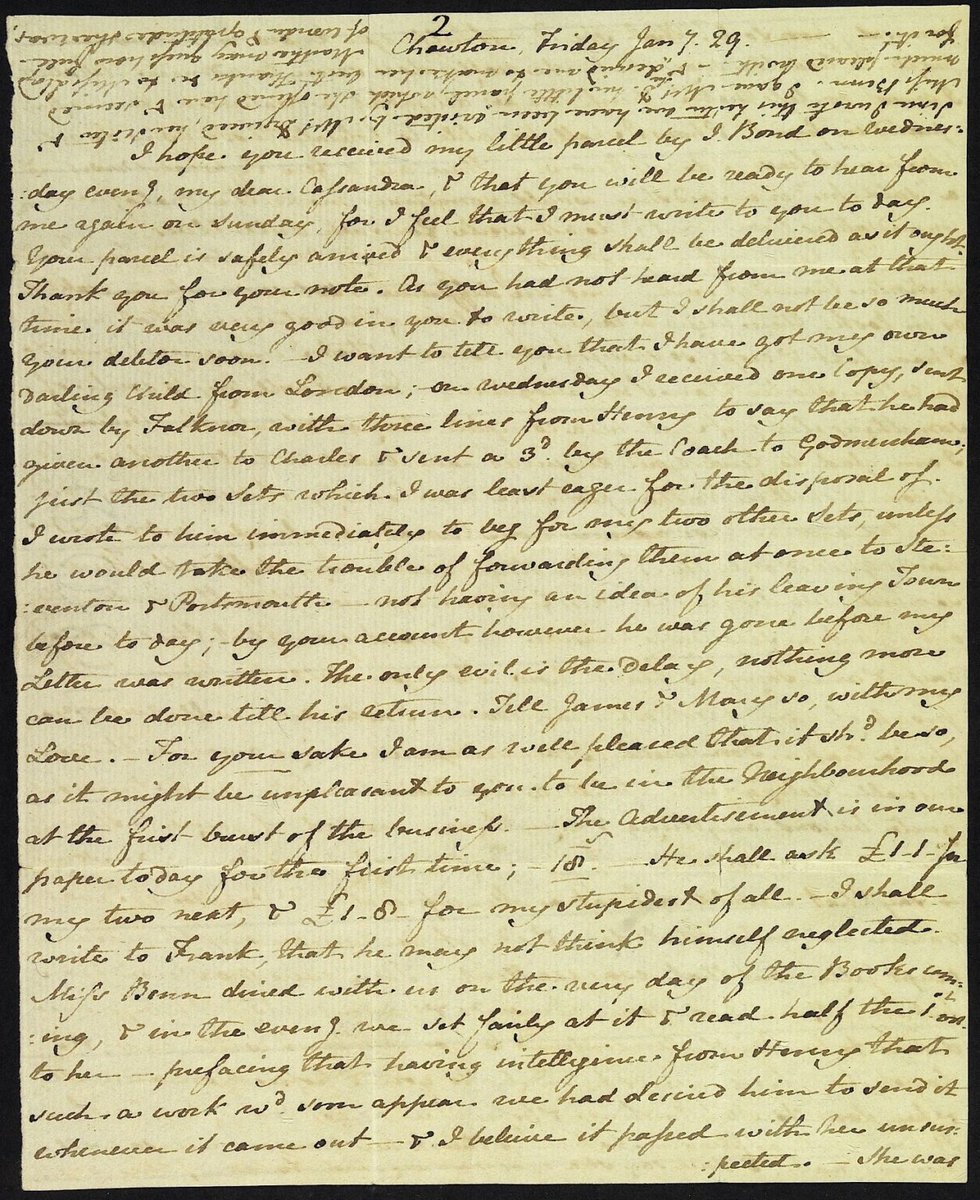 2
Chawton, Friday Jany. 29.
I hope you received my little parcel by J. Bond on Wednes=
:day eveng, my dear Cassandra, & that you will be ready to hear from
me again on Sunday, for I feel that I must write to you to day.
Your parcel is safely arrived & everything shall be delivered as it ought.
Thank you for your note. As you had not heard from me at that
time it was very good in you to write, but I shall not be so much
your debtor soon. — I want to tell you that I have got my own
darling Child from London; — on Wednesday I received one Copy, sent
down by Falknor, with three lines from Henry to say that he had
given another to Charles & sent a 3d. by the Coach to Godmersham;
just the two Sets which I was least eager for the disposal of.
I wrote to him immediately to beg for my two other Sets, unless
he would take the trouble of forwarding them at once to Ste=
:venton & Portsmouth — not having an idea of his leaving Town
before to day; — by your account however he was gone before my
Letter was written. The only evil is the delay, nothing more
can be done till his return. Tell James & Mary so, with my
Love. — For your sake I am as well pleased that it shd. be so,
as it might be unpleasant to you to be in the Neighbourhood
at the first burst of the business. — The Advertisement is in our
paper to day for the first time; — 18s. — He shall ask £1-1- for
my two next, & £1-8- for my stupidest of all. — I shall
write to Frank, that he may not think himself neglected.
Miss Benn dined with us on the very day of the Books com=
:ing, & in the eveng. we set fairly at it & read half the 1st vol.
to her — prefacing that having intelligence from Henry that
such a work wd. soon appear we had desired him to send it
whenever it came out — & I beleive it passed with her unsus=
:pected. — She was
Since I wrote this Letter we have been visited by Mrs Digweed, her Sister &
Miss Benn. I gave Mrs D. her little parcel, which she opened here & seemed
much pleased with — & she desired me to make her best Thanks &c to Miss Lloyd
for it. — Martha may guess how full
of wonder & gratitude she was.